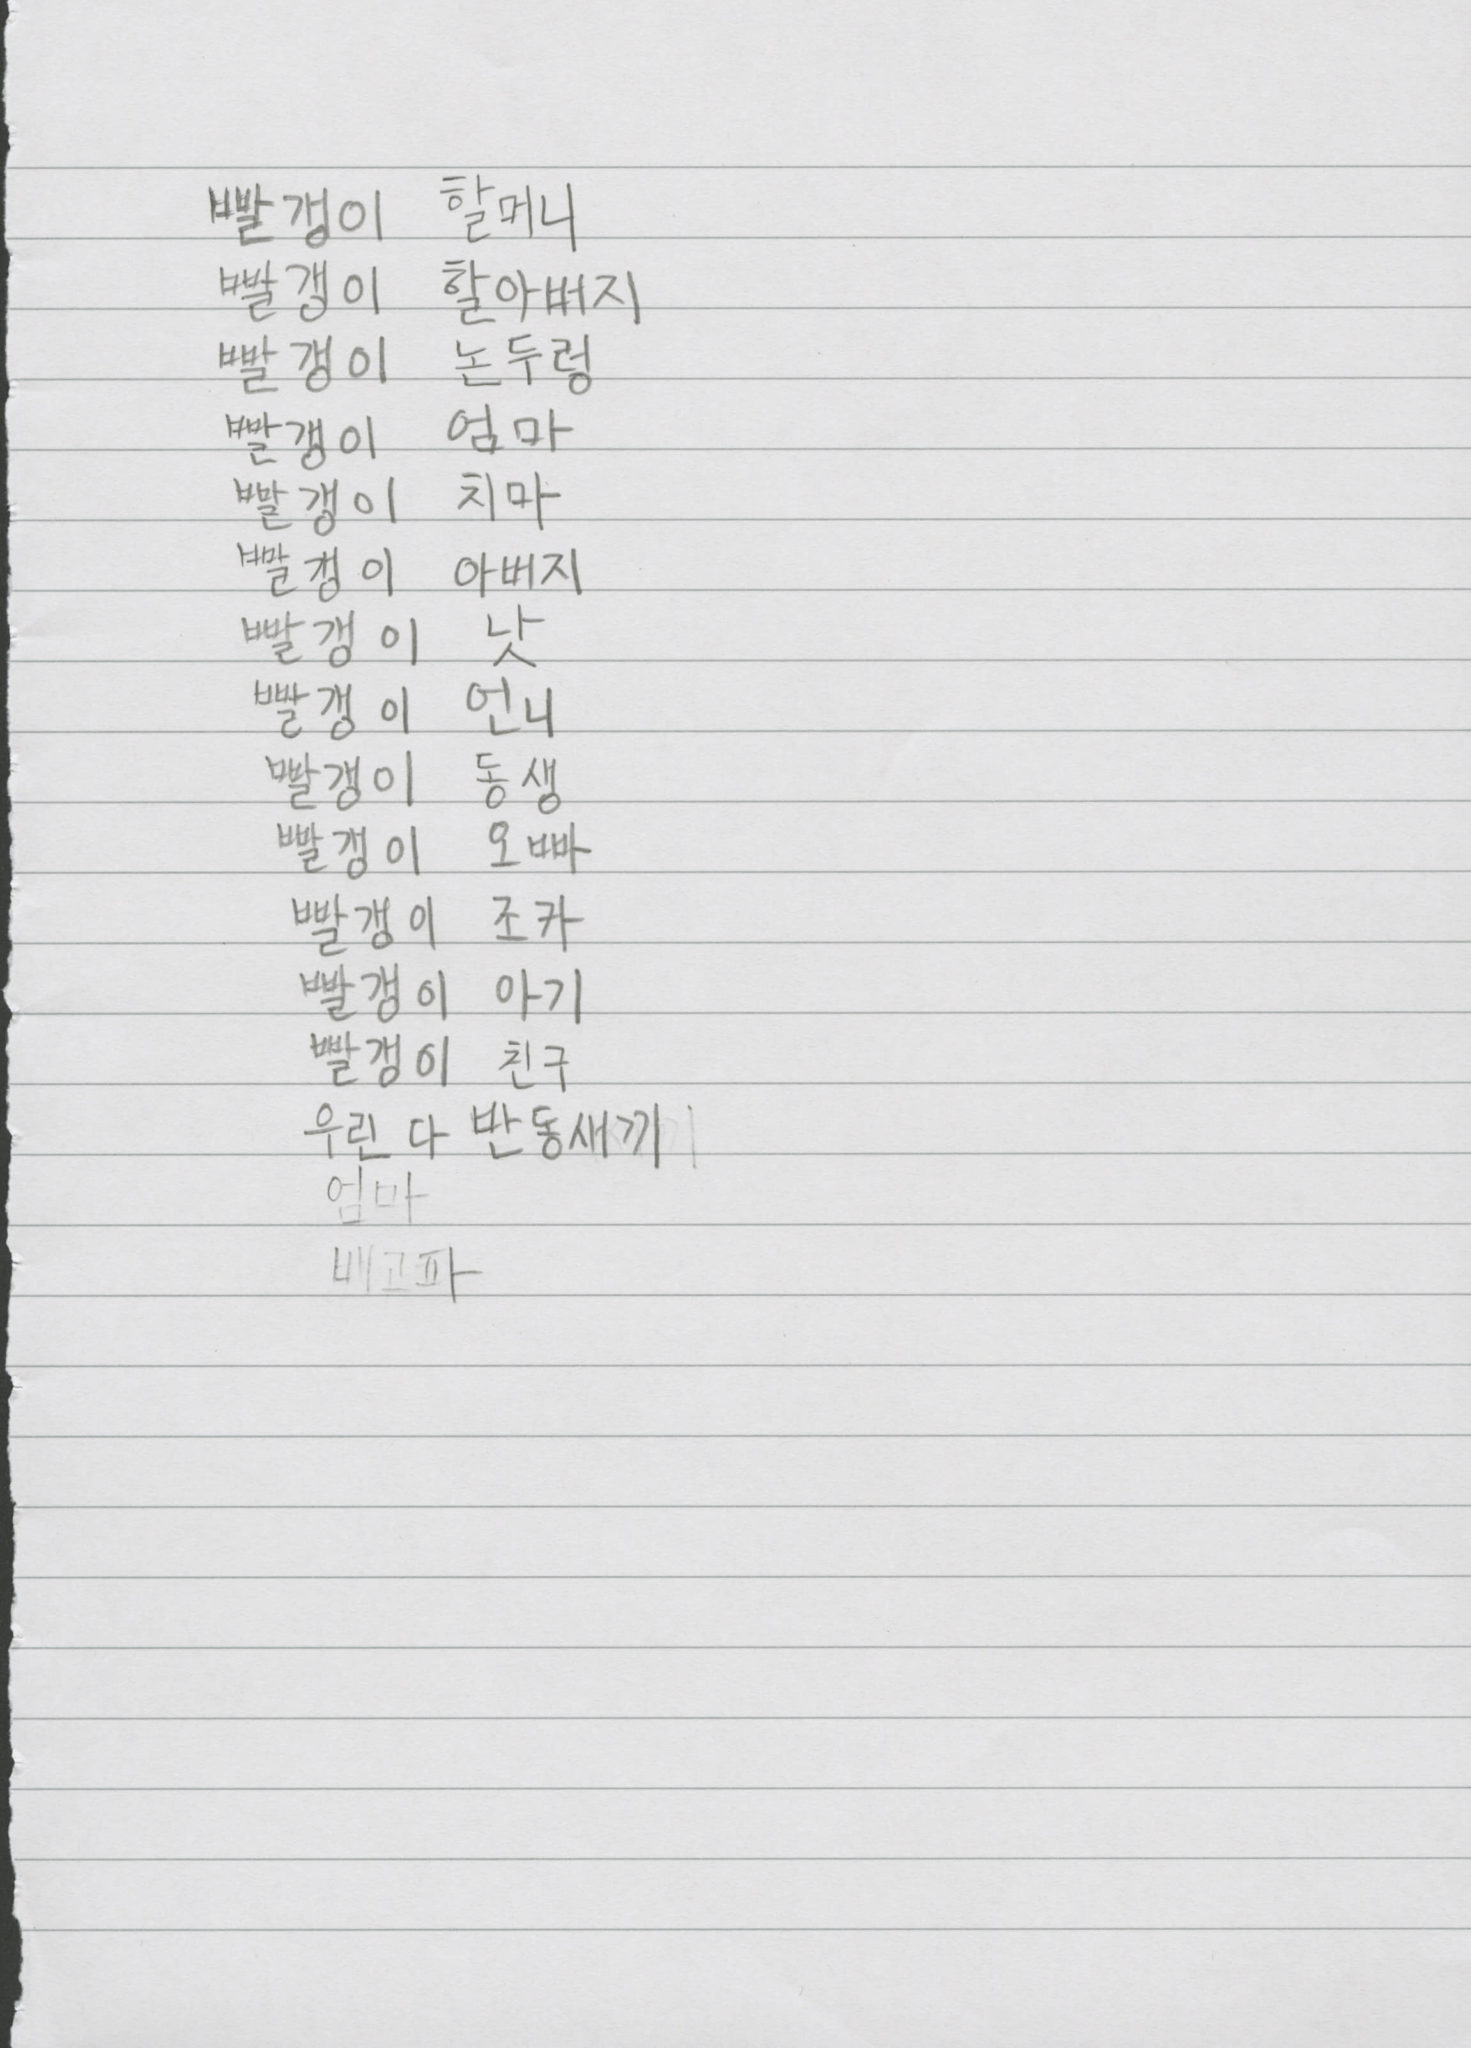 빨갱이 할머니
빨갱이 할아버지
빨갱이 논두렁
빨갱이 엄마
빨갱이 치마
빨갱이 아버지
빨갱이 낫
빨갱이 언니
빨갱이 동생
빨갱이 오빠
빨갱이 조카
빨갱이 아기
빨갱이 친구
우린 다 반동새끼
엄마
배고파